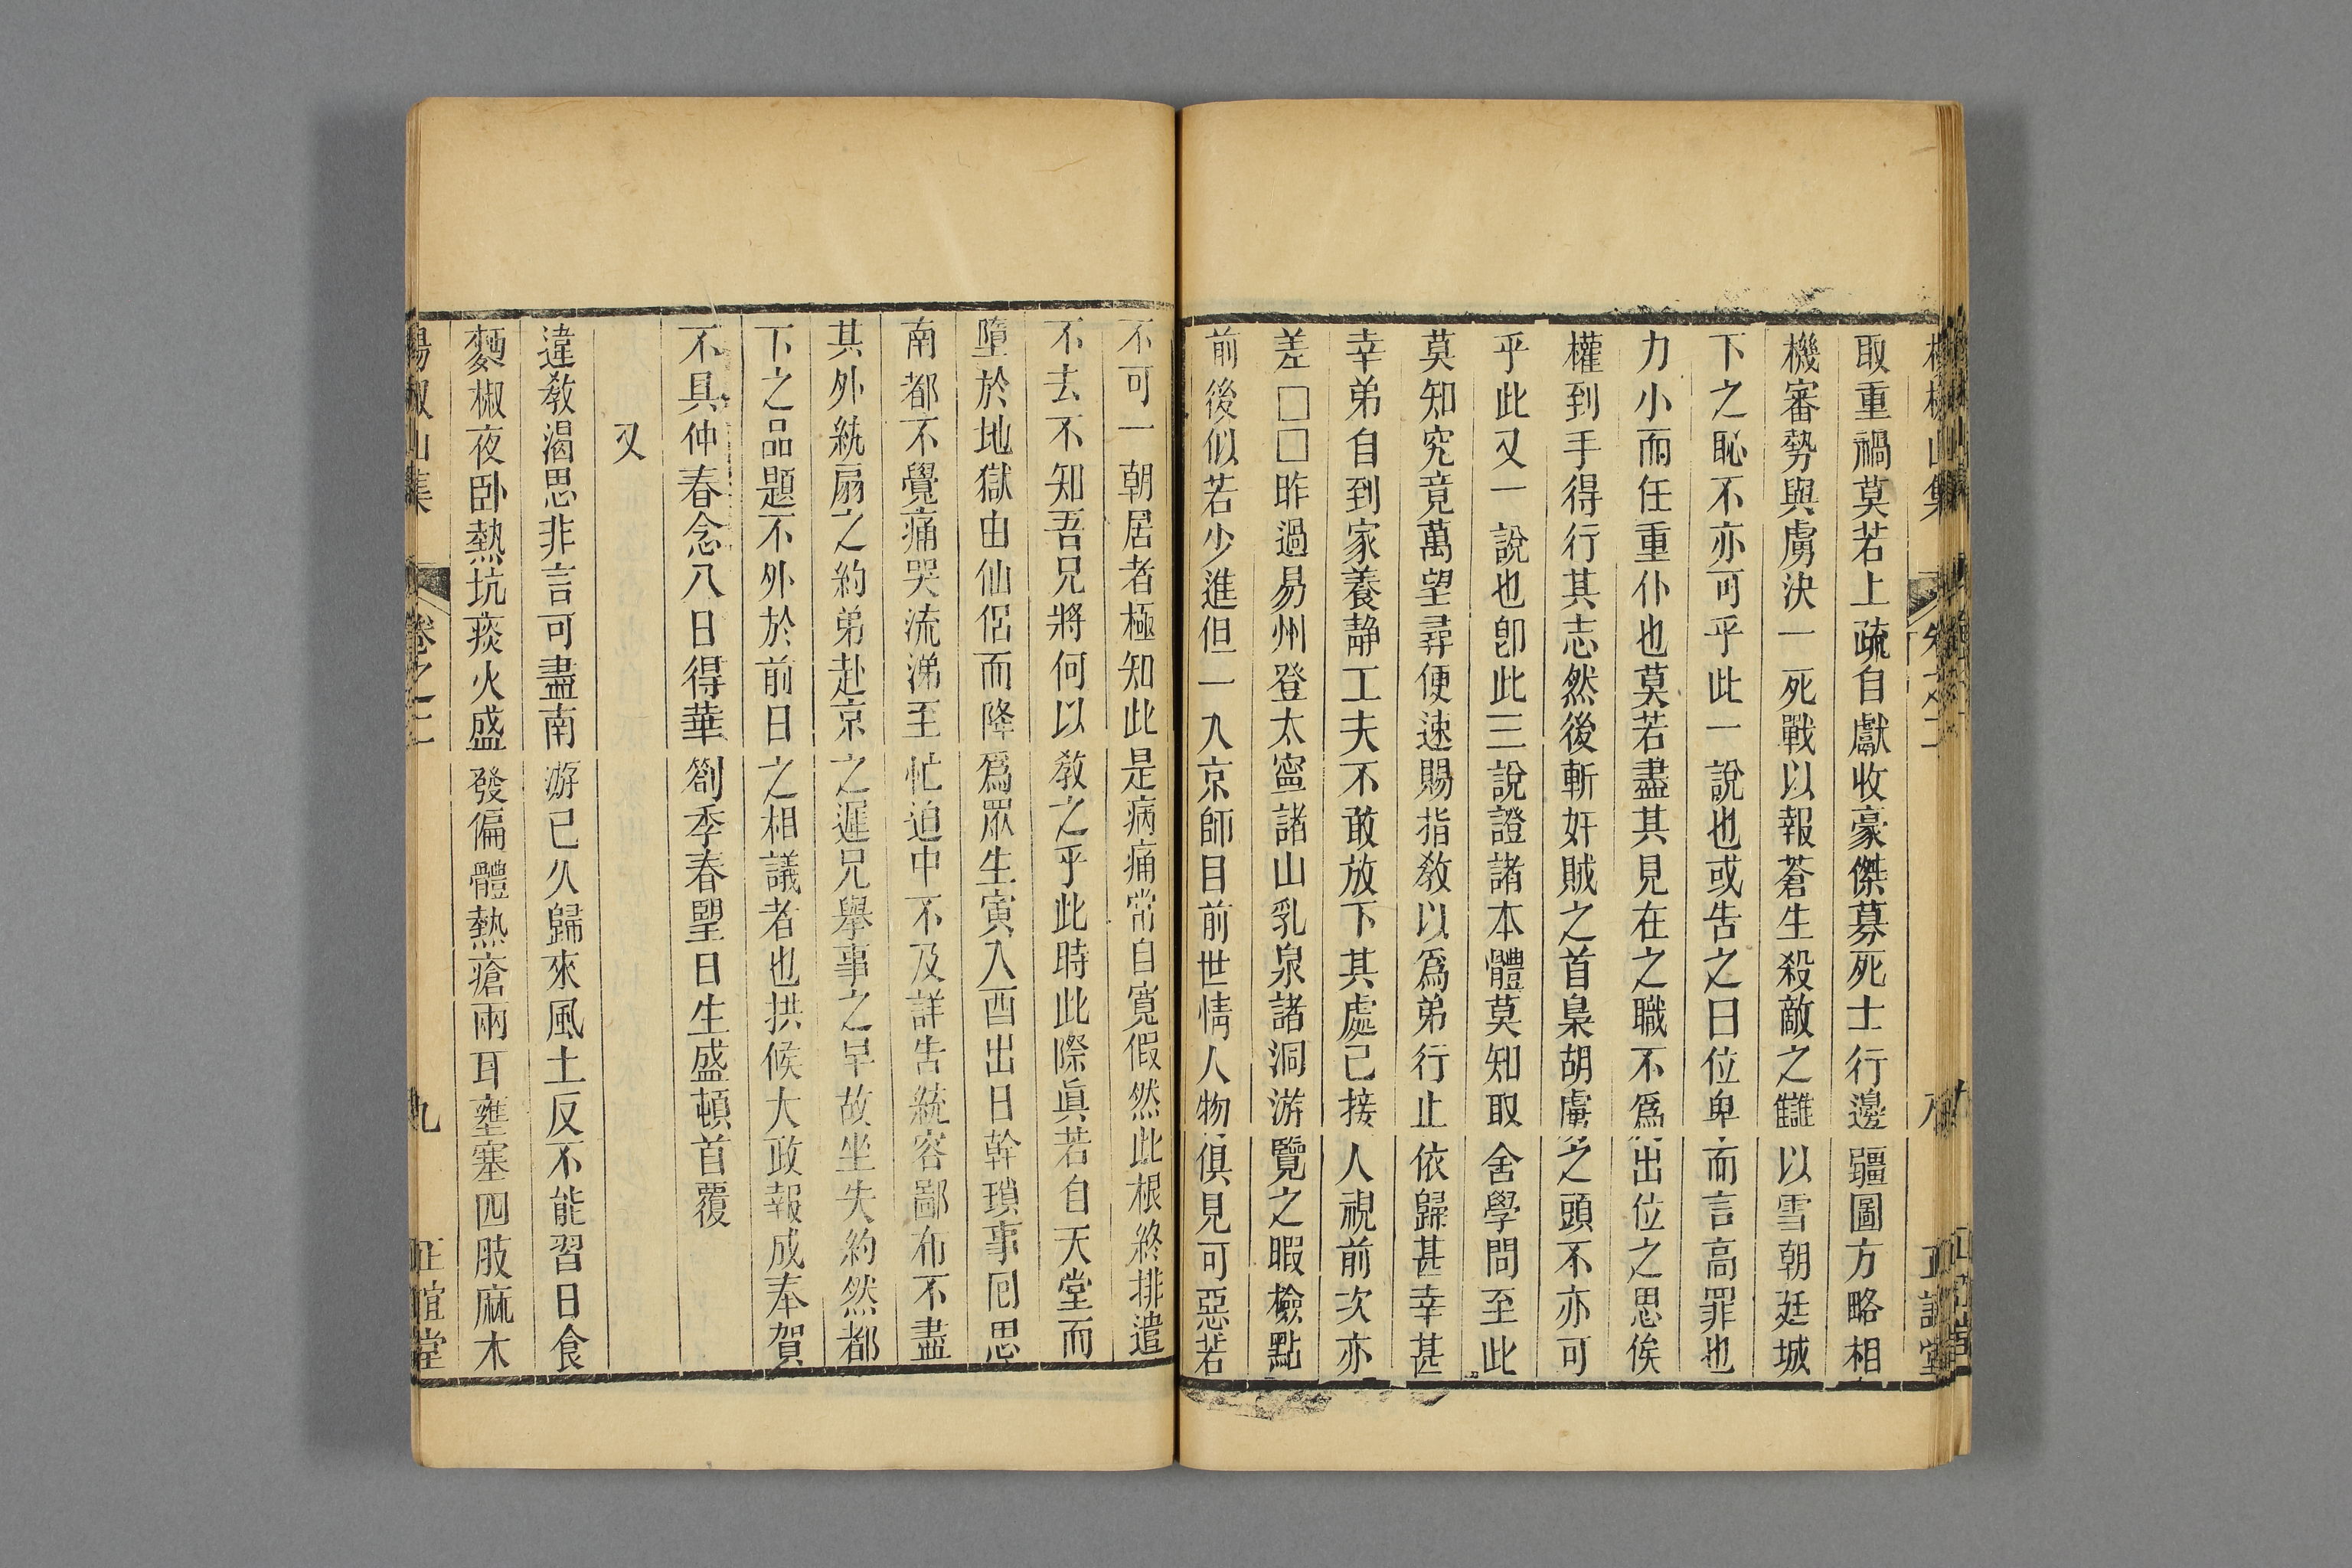 取重禍莫若上疏自獻收豪傑募死士行邊疆圖方略相
機審勢與虜決一死戰以報蒼生殺敵之讎以雪朝廷城
下之恥不亦可乎此一說也或告之曰位卑而言高罪也
力小而任重仆也莫若盡其見在之職不爲出位之思俟
權到手得行其志然後斬奸賊之首梟胡虜之頭不亦可
乎此又一說也卽此三說證諸本體莫知取舍學問至此
莫知究竟萬望尋便速賜指敎以爲弟行止依歸甚幸甚
幸弟自到家養靜工夫不敢放下其處己接人視前次亦
差□□昨過易州登太寧諸山乳泉諸洞游覽之暇檢點
前後似若少進但一入京師目前世情人物俱見可惡若
不可一朝居者極知此是病痛常自寬假然此根終排遣
不去不知吾兄將何以敎之乎此時此際眞若自天堂而
墮於地獄由仙侶而降爲眾生寅入酉出日幹瑣事囘思
南都不覺痛哭流涕至忙迫中不及詳告統容鄙布不盡
其外紈扇之約弟赴京之遲兄舉事之早故坐失約然都
下之品題不外於前日之相議者也拱候大政報成奉賀
不具仲春念八日得華劄季春朢日生盛頓首覆
又
違敎渴思非言可盡南游已久歸來風土反不能習日食
麪椒夜卧熱坑痰火盛發偏體熱瘡兩耳壅塞四肢麻木
楊椒山集 卷之二 九 正誼堂